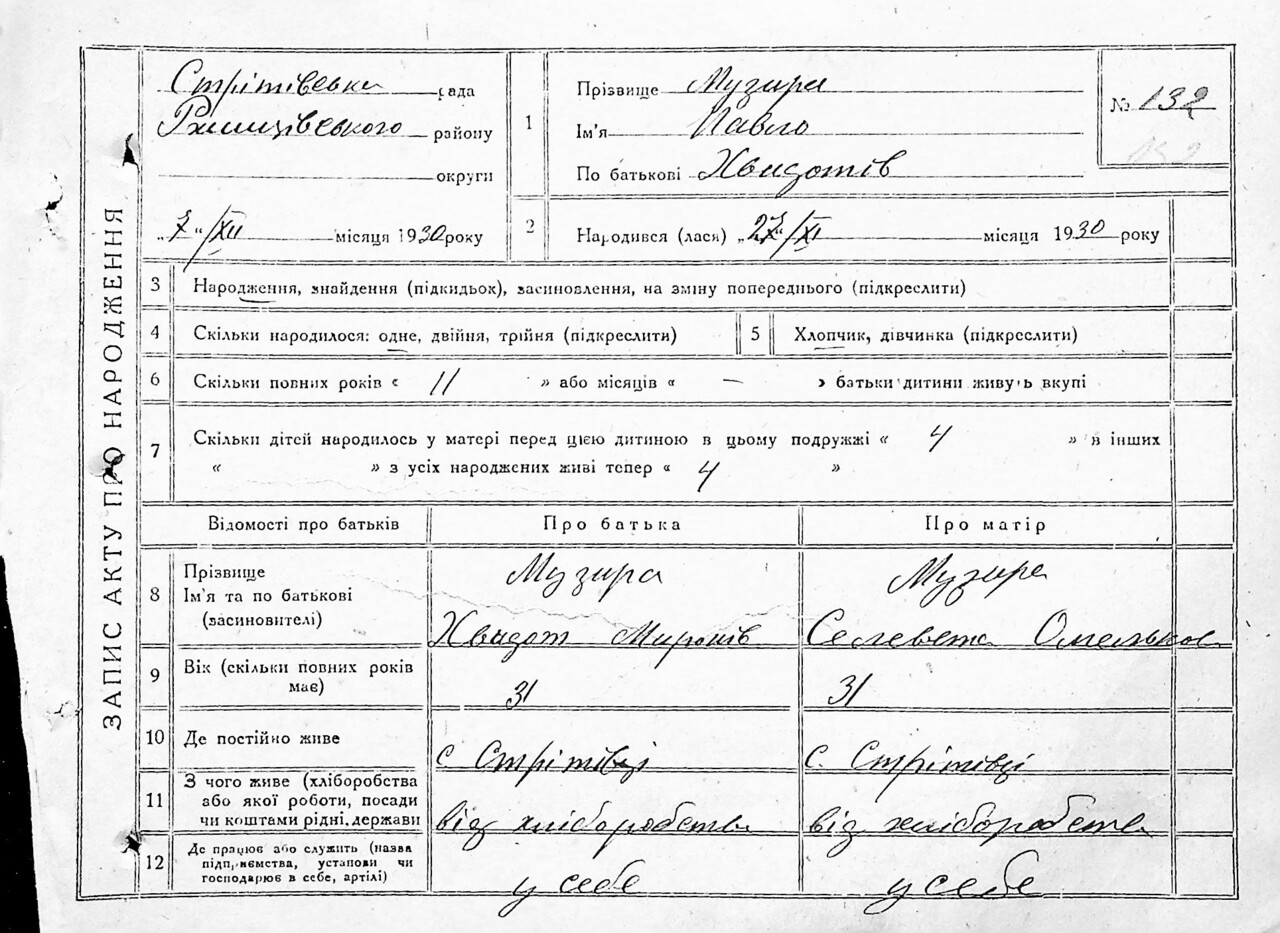 ЗАПИС АКТУ ПРО НАРОДЖЕННЯ
Стрітівська рада
Ржищівського району
округи
„7“/XII місяця 1930 року
1
Прізвище Музира
Ім'я Павло
По батькові Хвидотів
№ 132
132
2
Народився (лася) „27“/XI місяця 1930 року
3 Народження, знайдення (підкидьок), засиновлення, на зміну попереднього (підкреслити)
4 Скільки народилося: одне, двійня, трійня (підкреслити)
5 Хлопчик, дівчинка (підкреслити)
6 Скільки повних років « 11 » або місяців « — » батьки дитини живуть вкупі
7 Скільки дітей народилось у матері перед цією дитиною в цьому подружжі « 4 » в інших
« » з усіх народжених живі тепер « 4 »
Відомості про батьків Про батька Про матір
8 Прізвище
Ім'я та по батькові
(засиновителі)
Музира
Хвидот Миронів
Музира
9 Вік (скільки повних років
має)
31
31
10 Де постійно живе
с Стрітівці
с. Стрітівці
11 З чого живе (хліборобства
або якої роботи, посади
чи коштами рідні, держави
від хліборобства
від хліборобства
12 Де працює або служить (назва
підприємства, установи чи
господарює в себе, артілі)
у себе
у себе